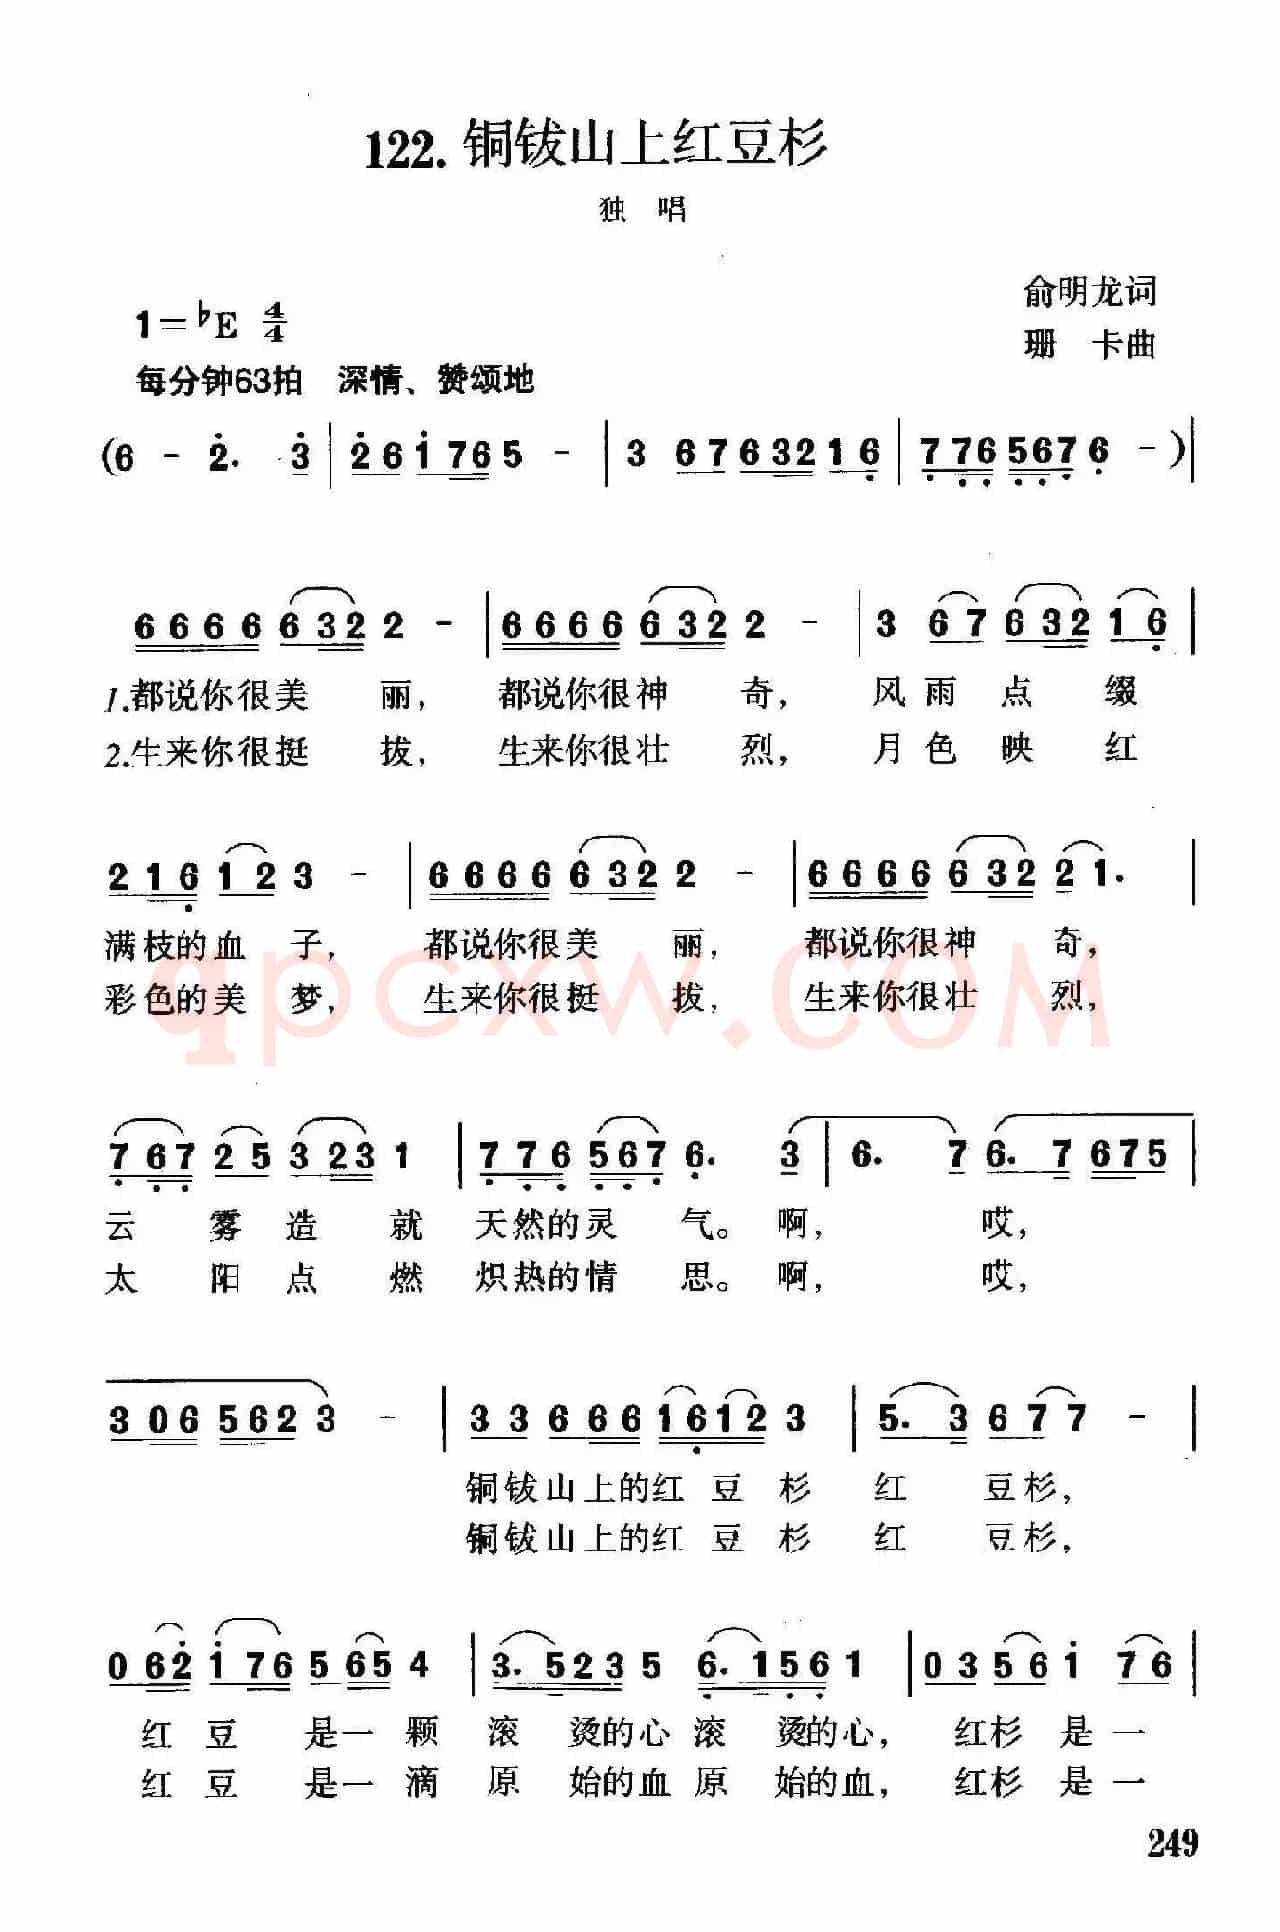 122. 铜钹山上红豆杉
独 唱
俞明龙词
1=♭E 4/4
珊 卡曲
每分钟63拍 深情、赞颂地
(6 - 2. 3 | 2 6 1 7 6 5 - | 3 6 7 6 3 2 1 6 | 7 7 6 5 6 7 6 -)|
6 6 6 6 6 3 2 2 - | 6 6 6 6 6 3 2 2 - | 3 6 7 6 3 2 1 6 |
1.都说你很美 丽, 都说你很神 奇, 风 雨 点 缀
2.生来你很挺 拔, 生来你很壮 烈, 月 色 映 红
2 1 6 1 2 3 - | 6 6 6 6 6 3 2 2 - | 6 6 6 6 6 3 2 2 1. |
满枝的血 子, 都说你很美 丽, 都说你很神 奇,
彩色的美 梦, 生来你很挺 拔, 生来你很壮 烈,
qpcxw.COM
7 6 7 2 5 3 2 3 1 | 7 7 6 5 6 7 6. 3 | 6. 7 6. 7 6 7 5 |
云 雾 造 就 天然的灵 气。啊, 哎,
太 阳 点 燃 炽热的情 思。啊, 哎,
3 0 6 5 6 2 3 - | 3 3 6 6 6 1 6 1 2 3 | 5. 3 6 7 7 - |
铜钹山上的红 豆 杉 红 豆杉,
铜钹山上的红 豆 杉 红 豆杉,
0 6 2 1 7 6 5 6 5 4 | 3. 5 2 3 5 6. 1 5 6 1 | 0 3 5 6 1 7 6 |
红 豆 是一 颗 滚 烫的心 滚 烫的心, 红杉 是 一
红 豆 是一 滴 原 始的血 原 始的血, 红杉 是 一
249